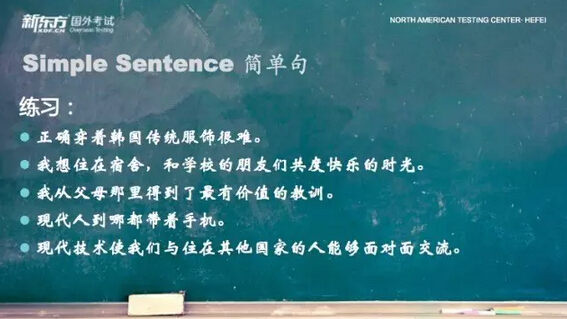 新东方 国外考试
XDF.CN Overseas Testing
NORTH AMERICAN TESTING CENTER· HEFEI
Simple Sentence 简单句
练习：
正确穿着韩国传统服饰很难。
我想住在宿舍，和学校的朋友们共度快乐的时光。
我从父母那里得到了最有价值的教训。
现代人到哪都带着手机。
现代技术使我们与住在其他国家的人能够面对面交流。